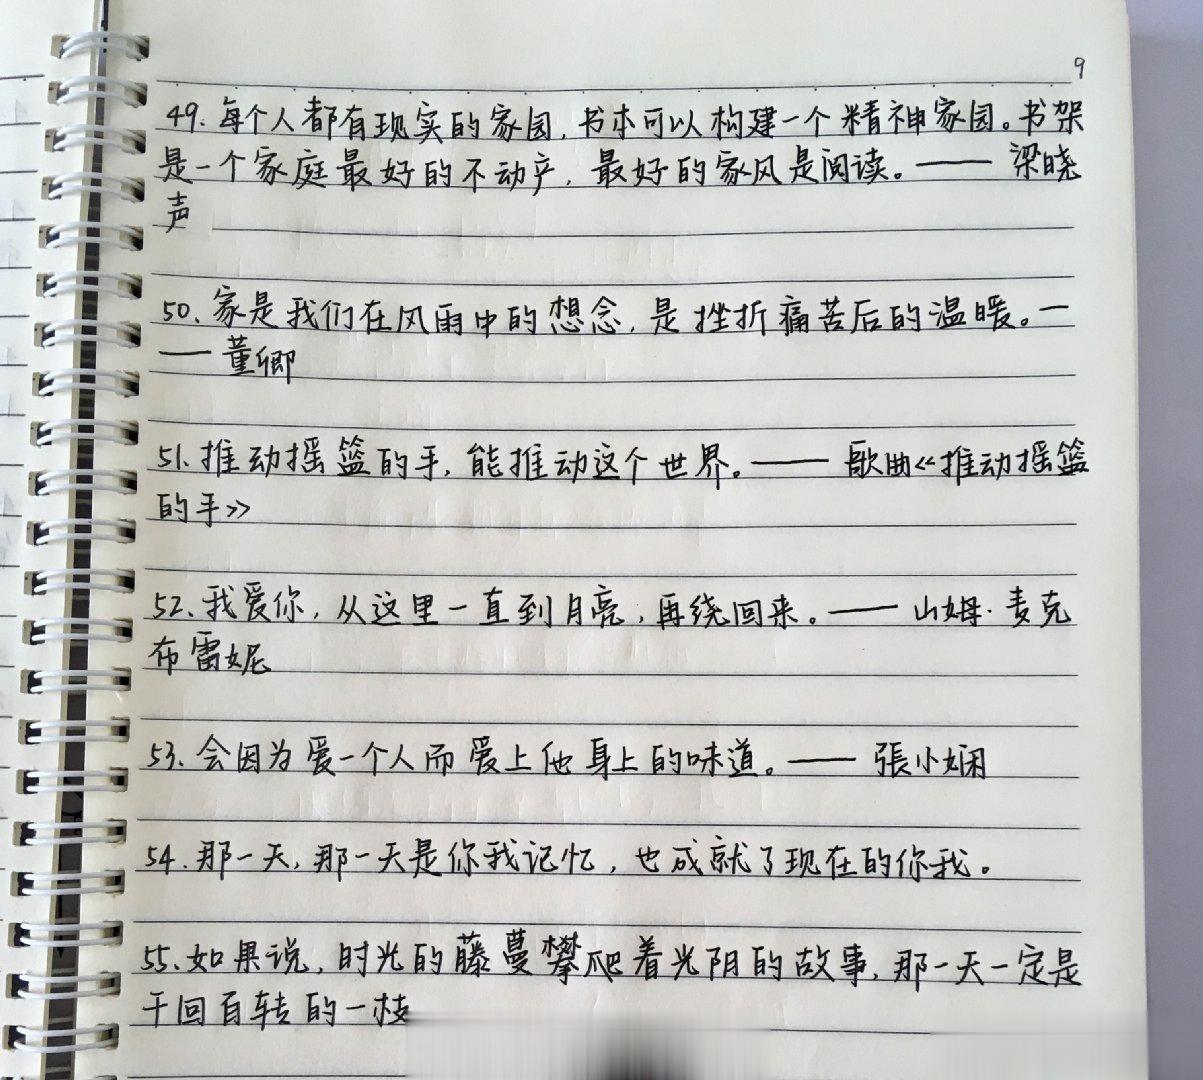 9
49. 每个人都有现实的家园，书本可以构建一个精神家园。书架
是一个家庭最好的不动产，最好的家风是阅读。—— 梁晓
声
50. 家是我们在风雨中的想念，是挫折痛苦后的温暖。—
— 董卿
51. 推动摇篮的手，能推动这个世界。—— 歌曲《推动摇篮
的手》
52. 我爱你，从这里一直到月亮，再绕回来。—— 山姆·麦克
布雷妮
53. 会因为爱一个人而爱上他身上的味道。—— 張小娴
54. 那一天，那一天是你我记忆，也成就了现在的你我。
55. 如果说，时光的藤蔓攀爬着光阴的故事，那一天一定是
千回百转的一枝